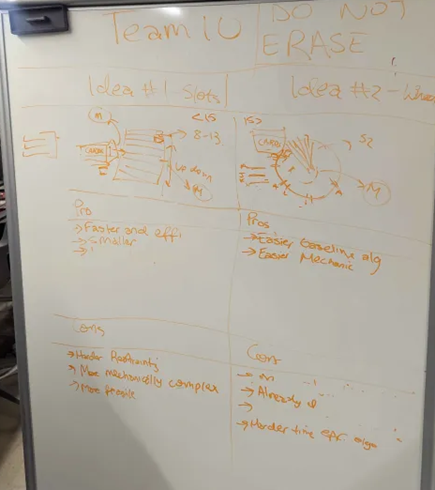 Team 10
DO NOT
ERASE
Idea #1 - Slots
Idea #2 -
<15
15>
M
8-13
CARD
CARD
S2
up down
M
M
Pro
→ Faster and effi
→ Smaller
→
Pros
→ Easier baseline alg
→ Easier Mechanic
Cons
→ Harder
→ More mechanically complex
→ More
Cons
→ Already
→
→ Harder time eff. algo